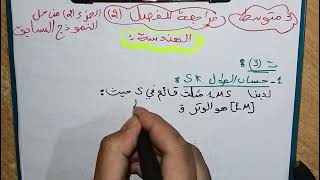 3 متوسط
مراجعة للفصل (2)
الجزء (2) من حل
النموذج السابق
الهندسة :
ت (3) :
1 - حساب الطول SK :
لدينا LMS مثلث قائم في S حيث :
[LM] هو الوتر و